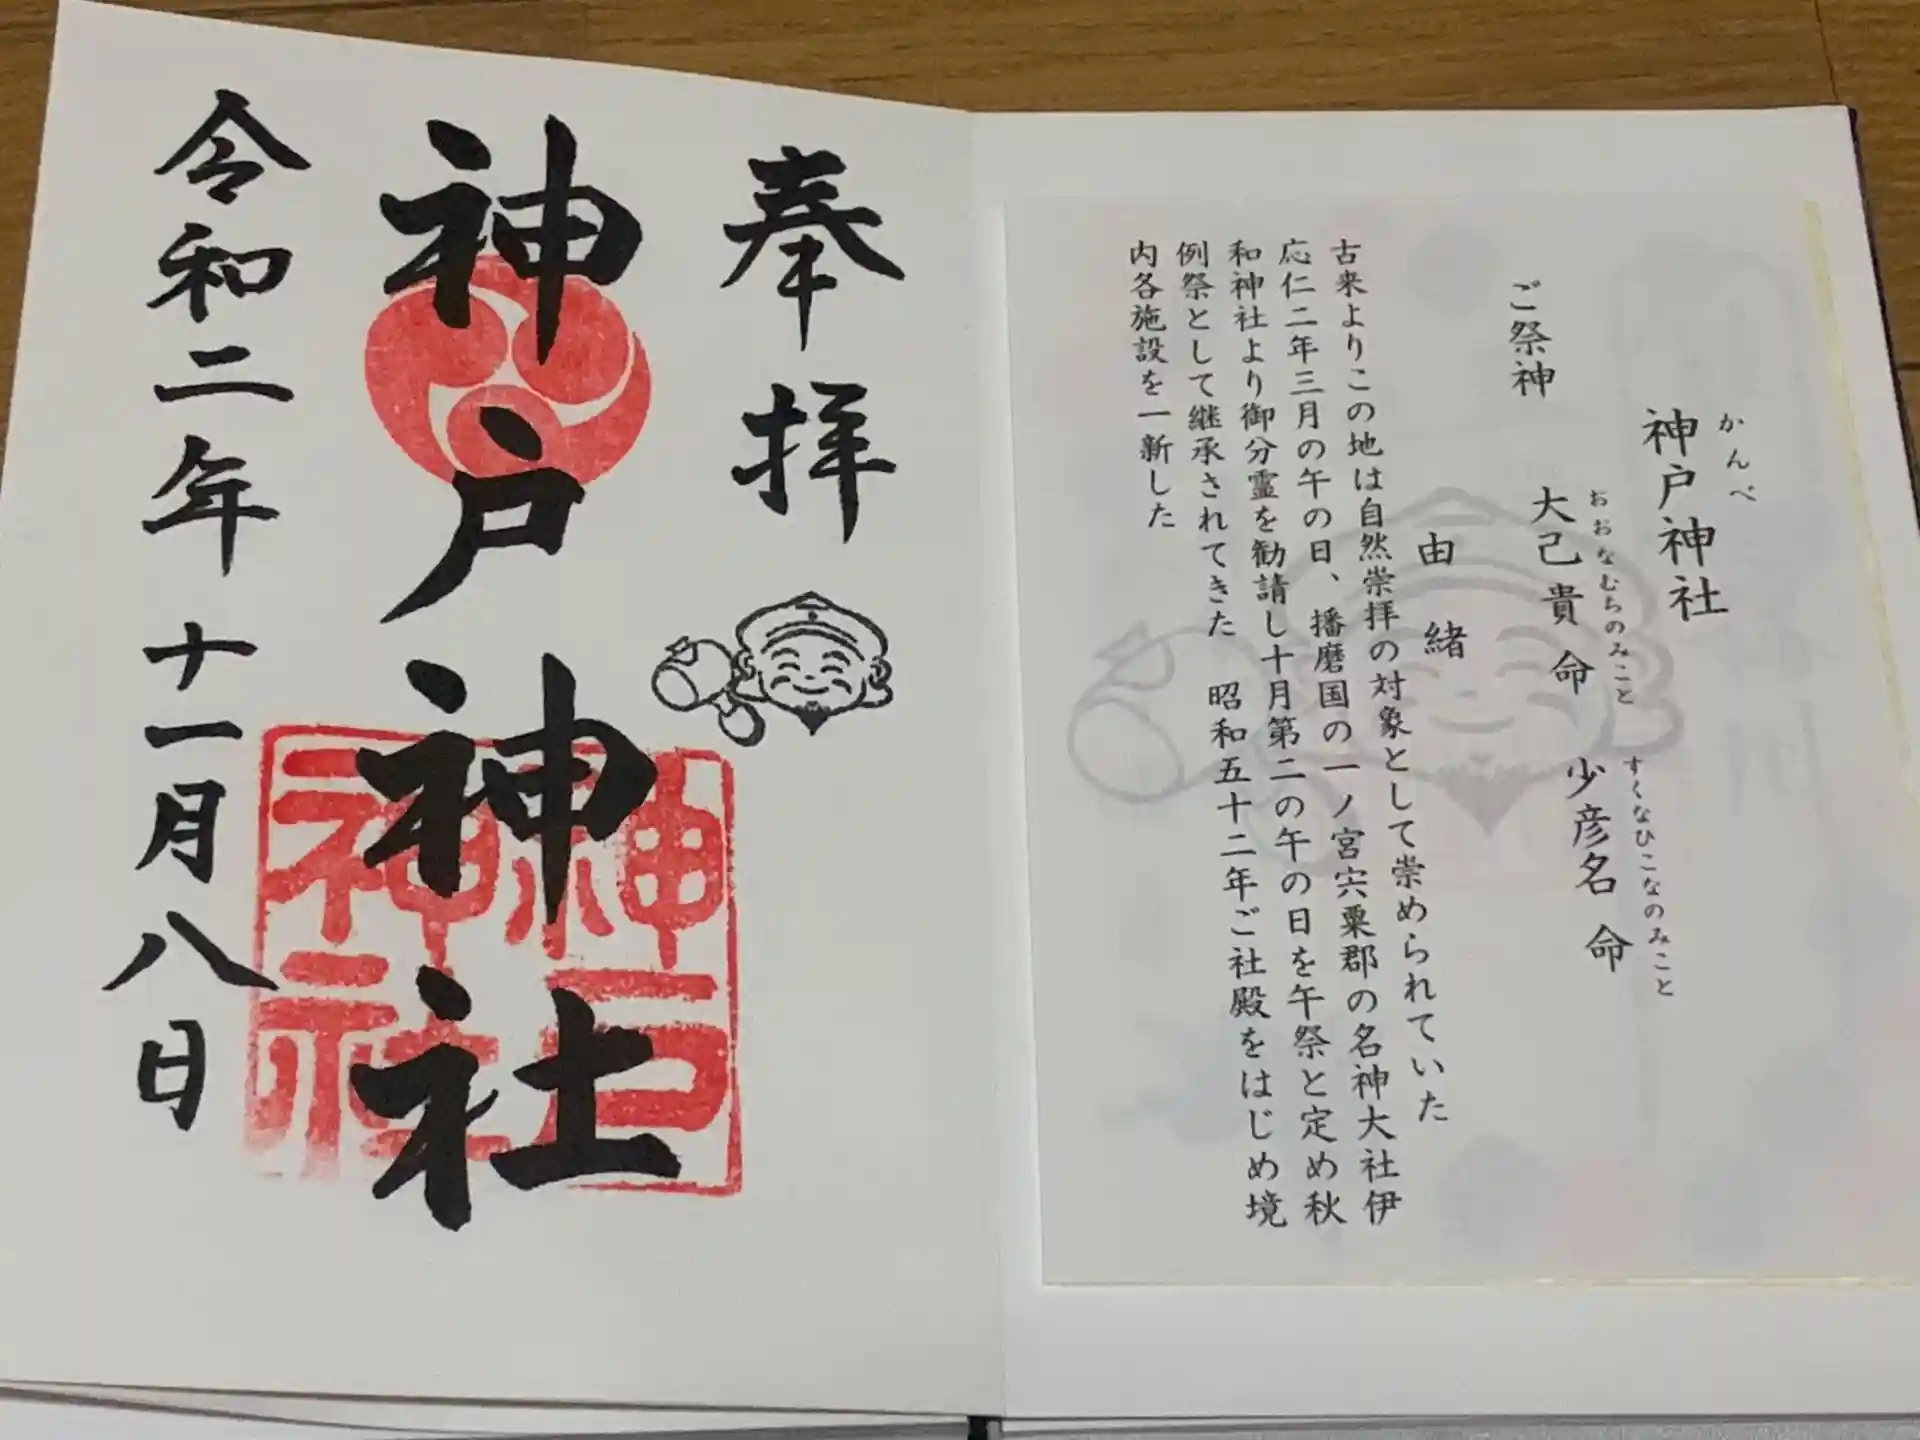 かんべ
神戸神社
ご祭神
おおなむちのみこと
大己貴命
すくなひこなのみこと
少彦名命
由緒
古来よりこの地は自然崇拝の対象として崇められていた
応仁二年三月の午の日、播磨国の一ノ宮宍粟郡の名神大社伊
和神社より御分霊を勧請し十月第二の午の日を午祭と定め秋
例祭として継承されてきた 昭和五十二年ご社殿をはじめ境
内各施設を一新した
奉拝
神戸神社
神戸
神社
令和二年十一月八日